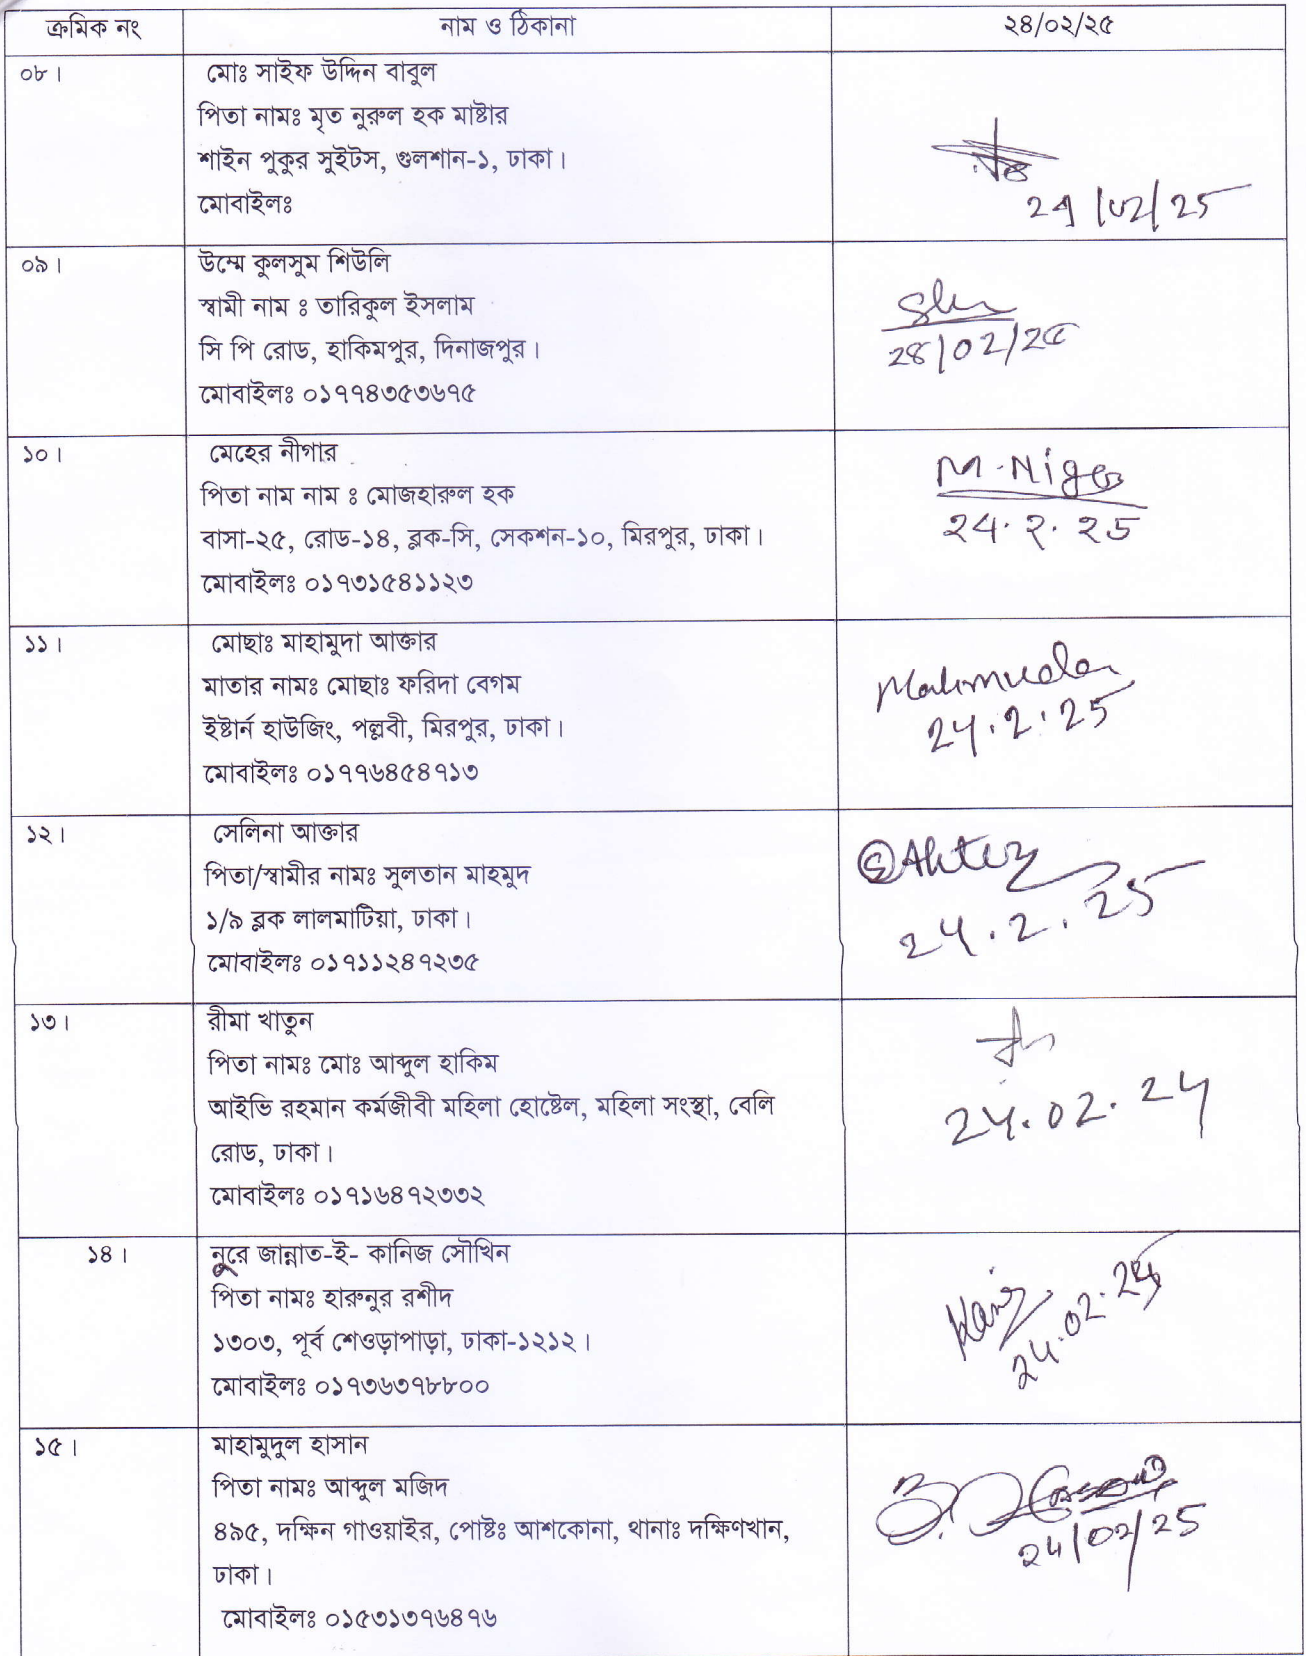 ক্রমিক নং নাম ও ঠিকানা ২৪/০২/২৫
০৮। মোঃ সাইফ উদ্দিন বাবুল
পিতা নামঃ মৃত নুরুল হক মাষ্টার
শাইন পুকুর সুইটস, গুলশান-১, ঢাকা।
মোবাইলঃ
24/02/25
০৯। উম্মে কুলসুম শিউলি
স্বামী নাম ঃ তারিকুল ইসলাম
সি পি রোড, হাকিমপুর, দিনাজপুর।
মোবাইলঃ ০১৭৭৪৩৫৩৬৭৫
১০। মেহের নীগার
পিতা নাম নাম ঃ মোজহারুল হক
বাসা-২৫, রোড-১৪, ব্লক-সি, সেকশন-১০, মিরপুর, ঢাকা।
মোবাইলঃ ০১৭৩১৫৪১১২৩
M.Nigar
24.2.25
১১। মোছাঃ মাহামুদা আক্তার
মাতার নামঃ মোছাঃ ফরিদা বেগম
ইষ্টার্ন হাউজিং, পল্লবী, মিরপুর, ঢাকা।
মোবাইলঃ ০১৭৭৬৪৫৪৭১৩
Mahmuda
24.2.25
১২। সেলিনা আক্তার
পিতা/স্বামীর নামঃ সুলতান মাহমুদ
১/৯ ব্লক লালমাটিয়া, ঢাকা।
মোবাইলঃ ০১৭১১২৪৭২৩৫
SAkter
24.2.25
১৩। রীমা খাতুন
পিতা নামঃ মোঃ আব্দুল হাকিম
আইভি রহমান কর্মজীবী মহিলা হোষ্টেল, মহিলা সংস্থা, বেলি
রোড, ঢাকা।
মোবাইলঃ ০১৭১৬৪৭২৩৩২
24.02.24
১৪। নুরে জান্নাত-ই- কানিজ সৌখিন
পিতা নামঃ হারুনুর রশীদ
১৩০৩, পূর্ব শেওড়াপাড়া, ঢাকা-১২১২।
মোবাইলঃ ০১৭৩৬৩৭৮৮০০
Kaniz
24.02.25
১৫। মাহামুদুল হাসান
পিতা নামঃ আব্দুল মজিদ
৪৯৫, দক্ষিন গাওয়াইর, পোষ্টঃ আশকোনা, থানাঃ দক্ষিণখান,
ঢাকা।
মোবাইলঃ ০১৫৩১৩৭৬৪৭৬
24/02/25